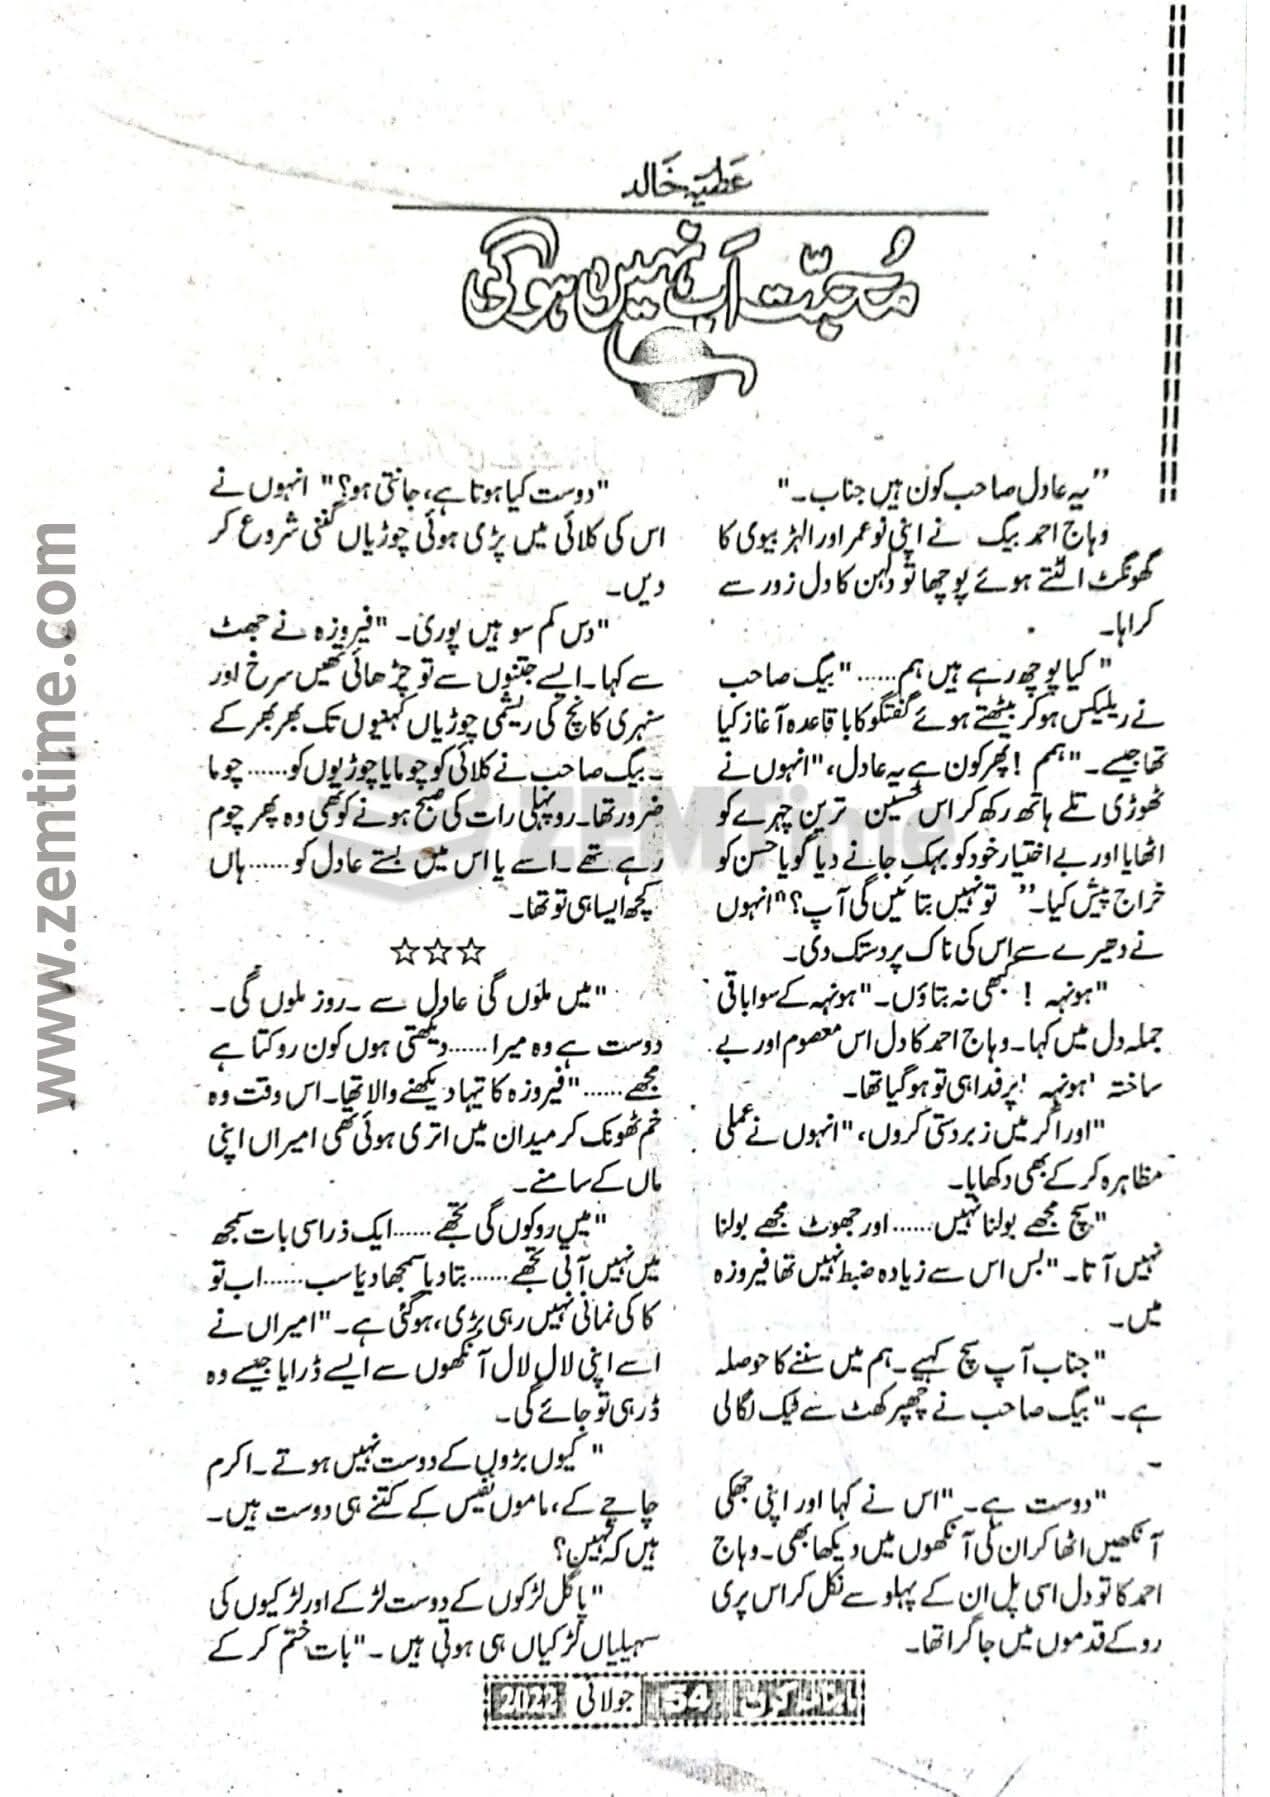 عطیہ خالد
محبّت اَب نہیں ہوگی
"یہ عادل صاحب کون ہیں جناب۔"
وہاج احمد بیگ نے اپنی نوعمر اور الہڑ بیوی کا
گھونگٹ الٹتے ہوئے پوچھا تو دلہن کا دل زور سے
کراہا۔
"کیا پوچھ رہے ہیں ہم......" بیگ صاحب
نے ریلیکس ہو کر بیٹھتے ہوئے گفتگو کا باقاعدہ آغاز کیا
تھا جیسے۔ "ہم! پھر کون ہے یہ عادل،" انہوں نے
ٹھوڑی تلے ہاتھ رکھ کر اس حسین ترین چہرے کو
اٹھایا اور بے اختیار خود کو بہک جانے دیا گویا حسن کو
خراج پیش کیا۔ "تو نہیں بتائیں گی آپ؟" انہوں
نے دھیرے سے اس کی ناک پر دستک دی۔
"ہونہہ! کبھی نہ بتاؤں۔" ہونہہ کے سوا باقی
جملہ دل میں کہا۔ وہاج احمد کا دل اس معصوم اور بے
ساختہ 'ہونہہ!' پر فدا ہی تو ہو گیا تھا۔
"اور اگر میں زبردستی کروں،" انہوں نے عملی
مظاہرہ کر کے بھی دکھایا۔
"سچ مجھے بولنا نہیں...... اور جھوٹ مجھے بولنا
نہیں آتا۔" بس اس سے زیادہ ضبط نہیں تھا فیروزہ
میں۔
"جناب آپ سچ کہیے۔ ہم میں سننے کا حوصلہ
ہے۔" بیگ صاحب نے چھپر کھٹ سے ٹیک لگا لی
۔
"دوست ہے۔" اس نے کہا اور اپنی جھکی
آنکھیں اٹھا کر ان کی آنکھوں میں دیکھا بھی۔ وہاج
احمد کا تو دل اسی پل ان کے پہلو سے نکل کر اس پری
رو کے قدموں میں جا گرا تھا۔
"دوست کیا ہوتا ہے، جانتی ہو؟" انہوں نے
اس کی کلائی میں پڑی ہوئی چوڑیاں گننی شروع کر
دیں۔
"دس کم سو ہیں پوری۔" فیروزہ نے جھٹ
سے کہا۔ ایسے جتنوں سے تو چڑھائی تھیں سرخ اور
سنہری کانچ کی ریشمی چوڑیاں کہنیوں تک بھر بھر کے
۔ بیگ صاحب نے کلائی کو چوما یا چوڑیوں کو...... چوما
ضرور تھا۔ روپہلی رات کی صبح ہونے کو تھی وہ پھر چوم
رہے تھے۔ اسے یا اس میں بستے عادل کو...... ہاں
کچھ ایسا ہی تو تھا۔
☆☆☆
"میں ملوں گی عادل سے۔ روز ملوں گی۔
دوست ہے وہ میرا...... دیکھتی ہوں کون روکتا ہے
مجھے......" فیروزہ کا تیہا دیکھنے والا تھا۔ اس وقت وہ
خم ٹھونک کر میدان میں اتری ہوئی تھی امیراں اپنی
ماں کے سامنے۔
"میں روکوں گی تجھے...... ایک ذرا سی بات سمجھ
میں نہیں آتی تجھے...... بتا دیا سمجھا دیا سب...... اب تو
کا کی نمانی نہیں رہی بڑی، ہو گئی ہے۔" امیراں نے
اسے اپنی لال لال آنکھوں سے ایسے ڈرایا جیسے وہ
ڈر ہی تو جائے گی۔
"کیوں بڑوں کے دوست نہیں ہوتے۔ اکرم
چاچے کے، ماموں نفیس کے کتنے ہی دوست ہیں۔
ہیں کہ نہیں؟
"پاگل لڑکوں کے دوست لڑکے اور لڑکیوں کی
سہیلیاں لڑکیاں ہی ہوتی ہیں۔" بات ختم کر کے
ماہنامہ کرن 54 جولائی 2022
www.zemtime.com
ZEMTime